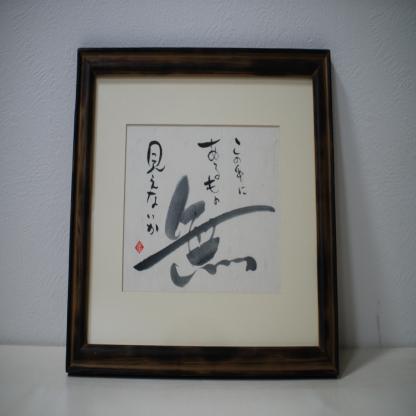 この中に
あるもの
見えないか
無